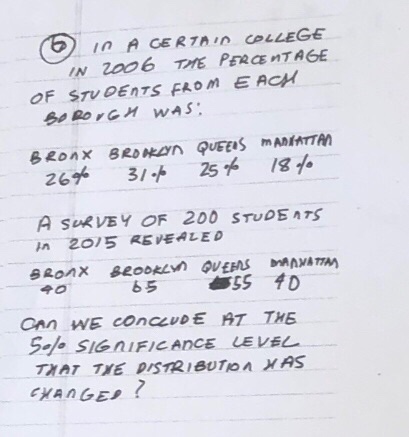 ⑥ In A CERTAIN COLLEGE
IN 2006 THE PERCENTAGE
OF STUDENTS FROM EACH
BOROUGH WAS:
BRONX BROOKLYN QUEENS MANHATTAN
26% 31% 25% 18%
A SURVEY OF 200 STUDENTS
in 2015 REVEALED
BRONX BROOKLYN QUEENS MANHATTAN
40 65 55 40
CAN WE CONCLUDE AT THE
5% SIGNIFICANCE LEVEL
THAT THE DISTRIBUTION HAS
CHANGED?